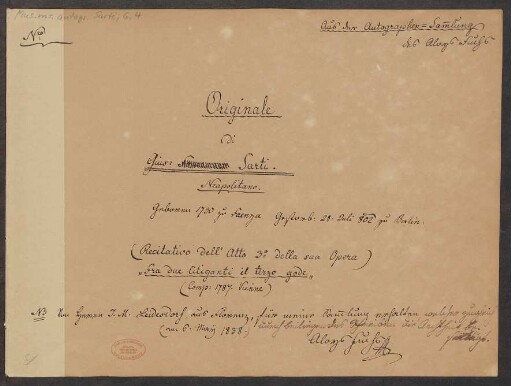 Mus. ms. autogr. Sarti, G. 4
Aus der Autographen=Samlung
des Aloys Fuchs
Nro
Originale
di
Gius: Sarti.
Neapolitano.
Geboren 1730 zu Faenza Gestorb: 28: Juli 802 zu Berlin.
(Recitativo dell' Atto 3o della sua Opera)
"Fra due litiganti il terzo gode"
(Comp: 1787. Vienne)
NB Von Herrn J. M. Leidesdorf aus Florenz, für meine Samlung erhalten
(am 6. März 1838.)
Aloys Fuchs